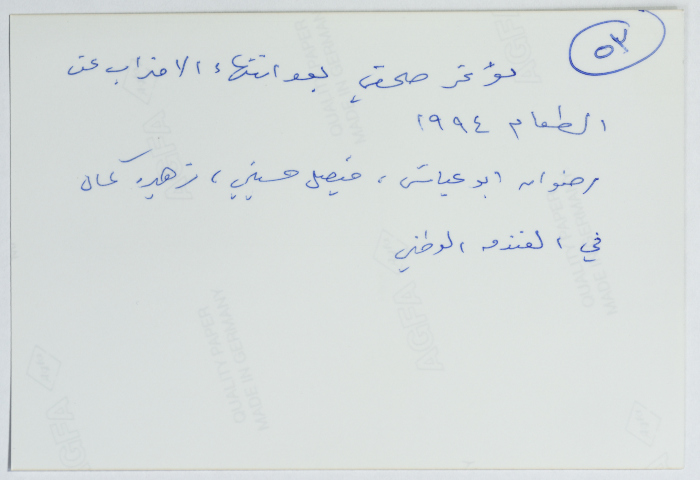 ٥٣
مؤتمر صحفي بعد انتهاء الاضراب عن
الطعام ١٩٩٤
رضوان ابو عياش، فيصل حسيني، زهيرة كمال
في الفندق الوطني
AGFA
QUALITY PAPER
MADE IN GERMANY